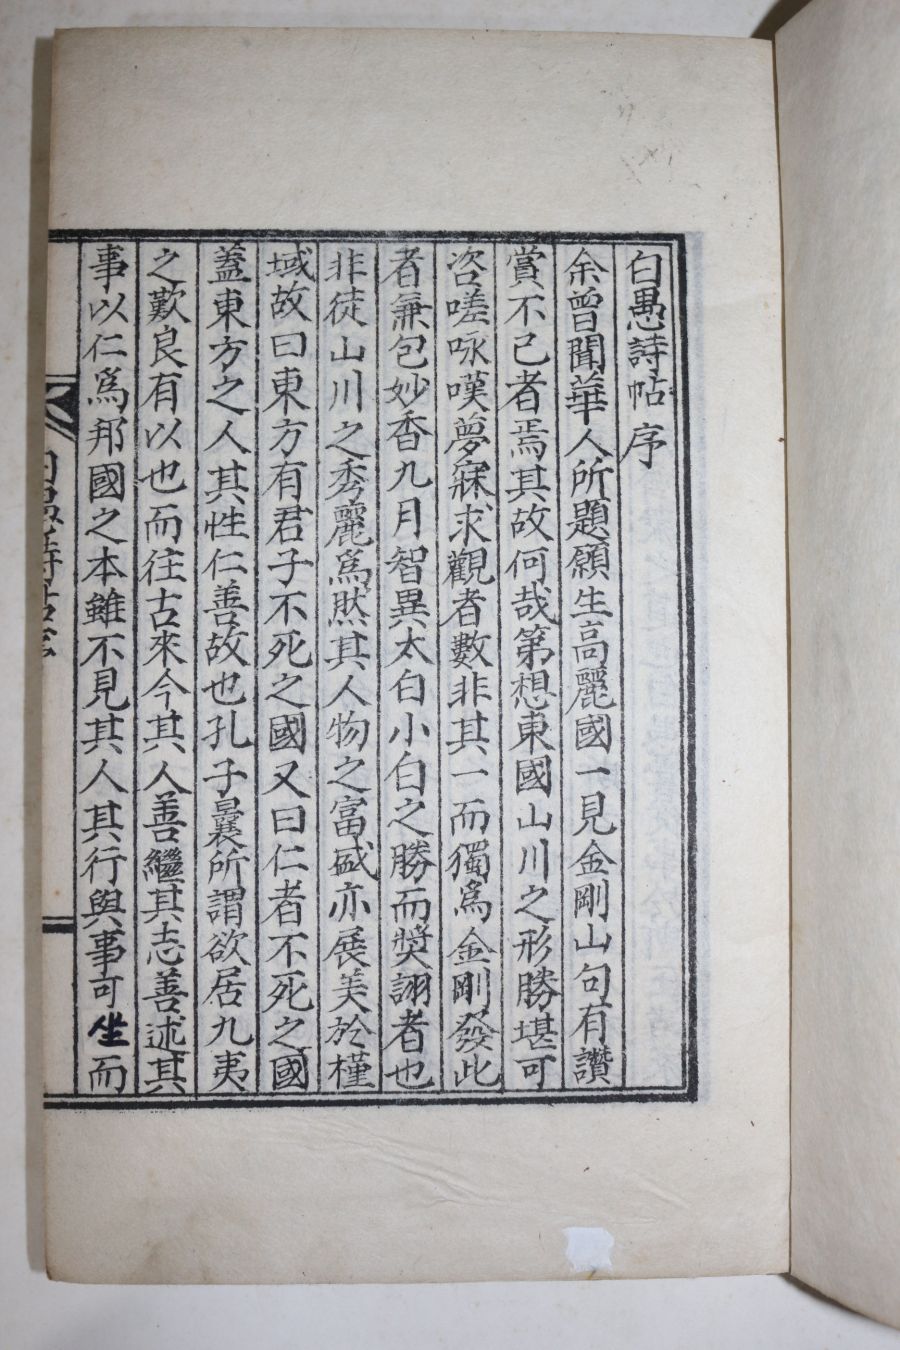 白愚詩帖序
余曾聞華人所題願生高麗國一見金剛山句有讚
賞不已者焉其故何哉第想東國山川之形勝堪可
咨嗟咏嘆夢寐求觀者數非其一而獨爲金剛發此
者兼包妙香九月智異太白小白之勝而奬詡者也
非徒山川之秀麗爲然其人物之富盛亦展美於槿
域故曰東方有君子不死之國又曰仁者不死之國
蓋東方之人其性仁善故也孔子曩所謂欲居九夷
之歎良有以也而往古來今其人善繼其志善述其
事以仁爲邦國之本雖不見其人其行與事可坐而
白愚詩帖序